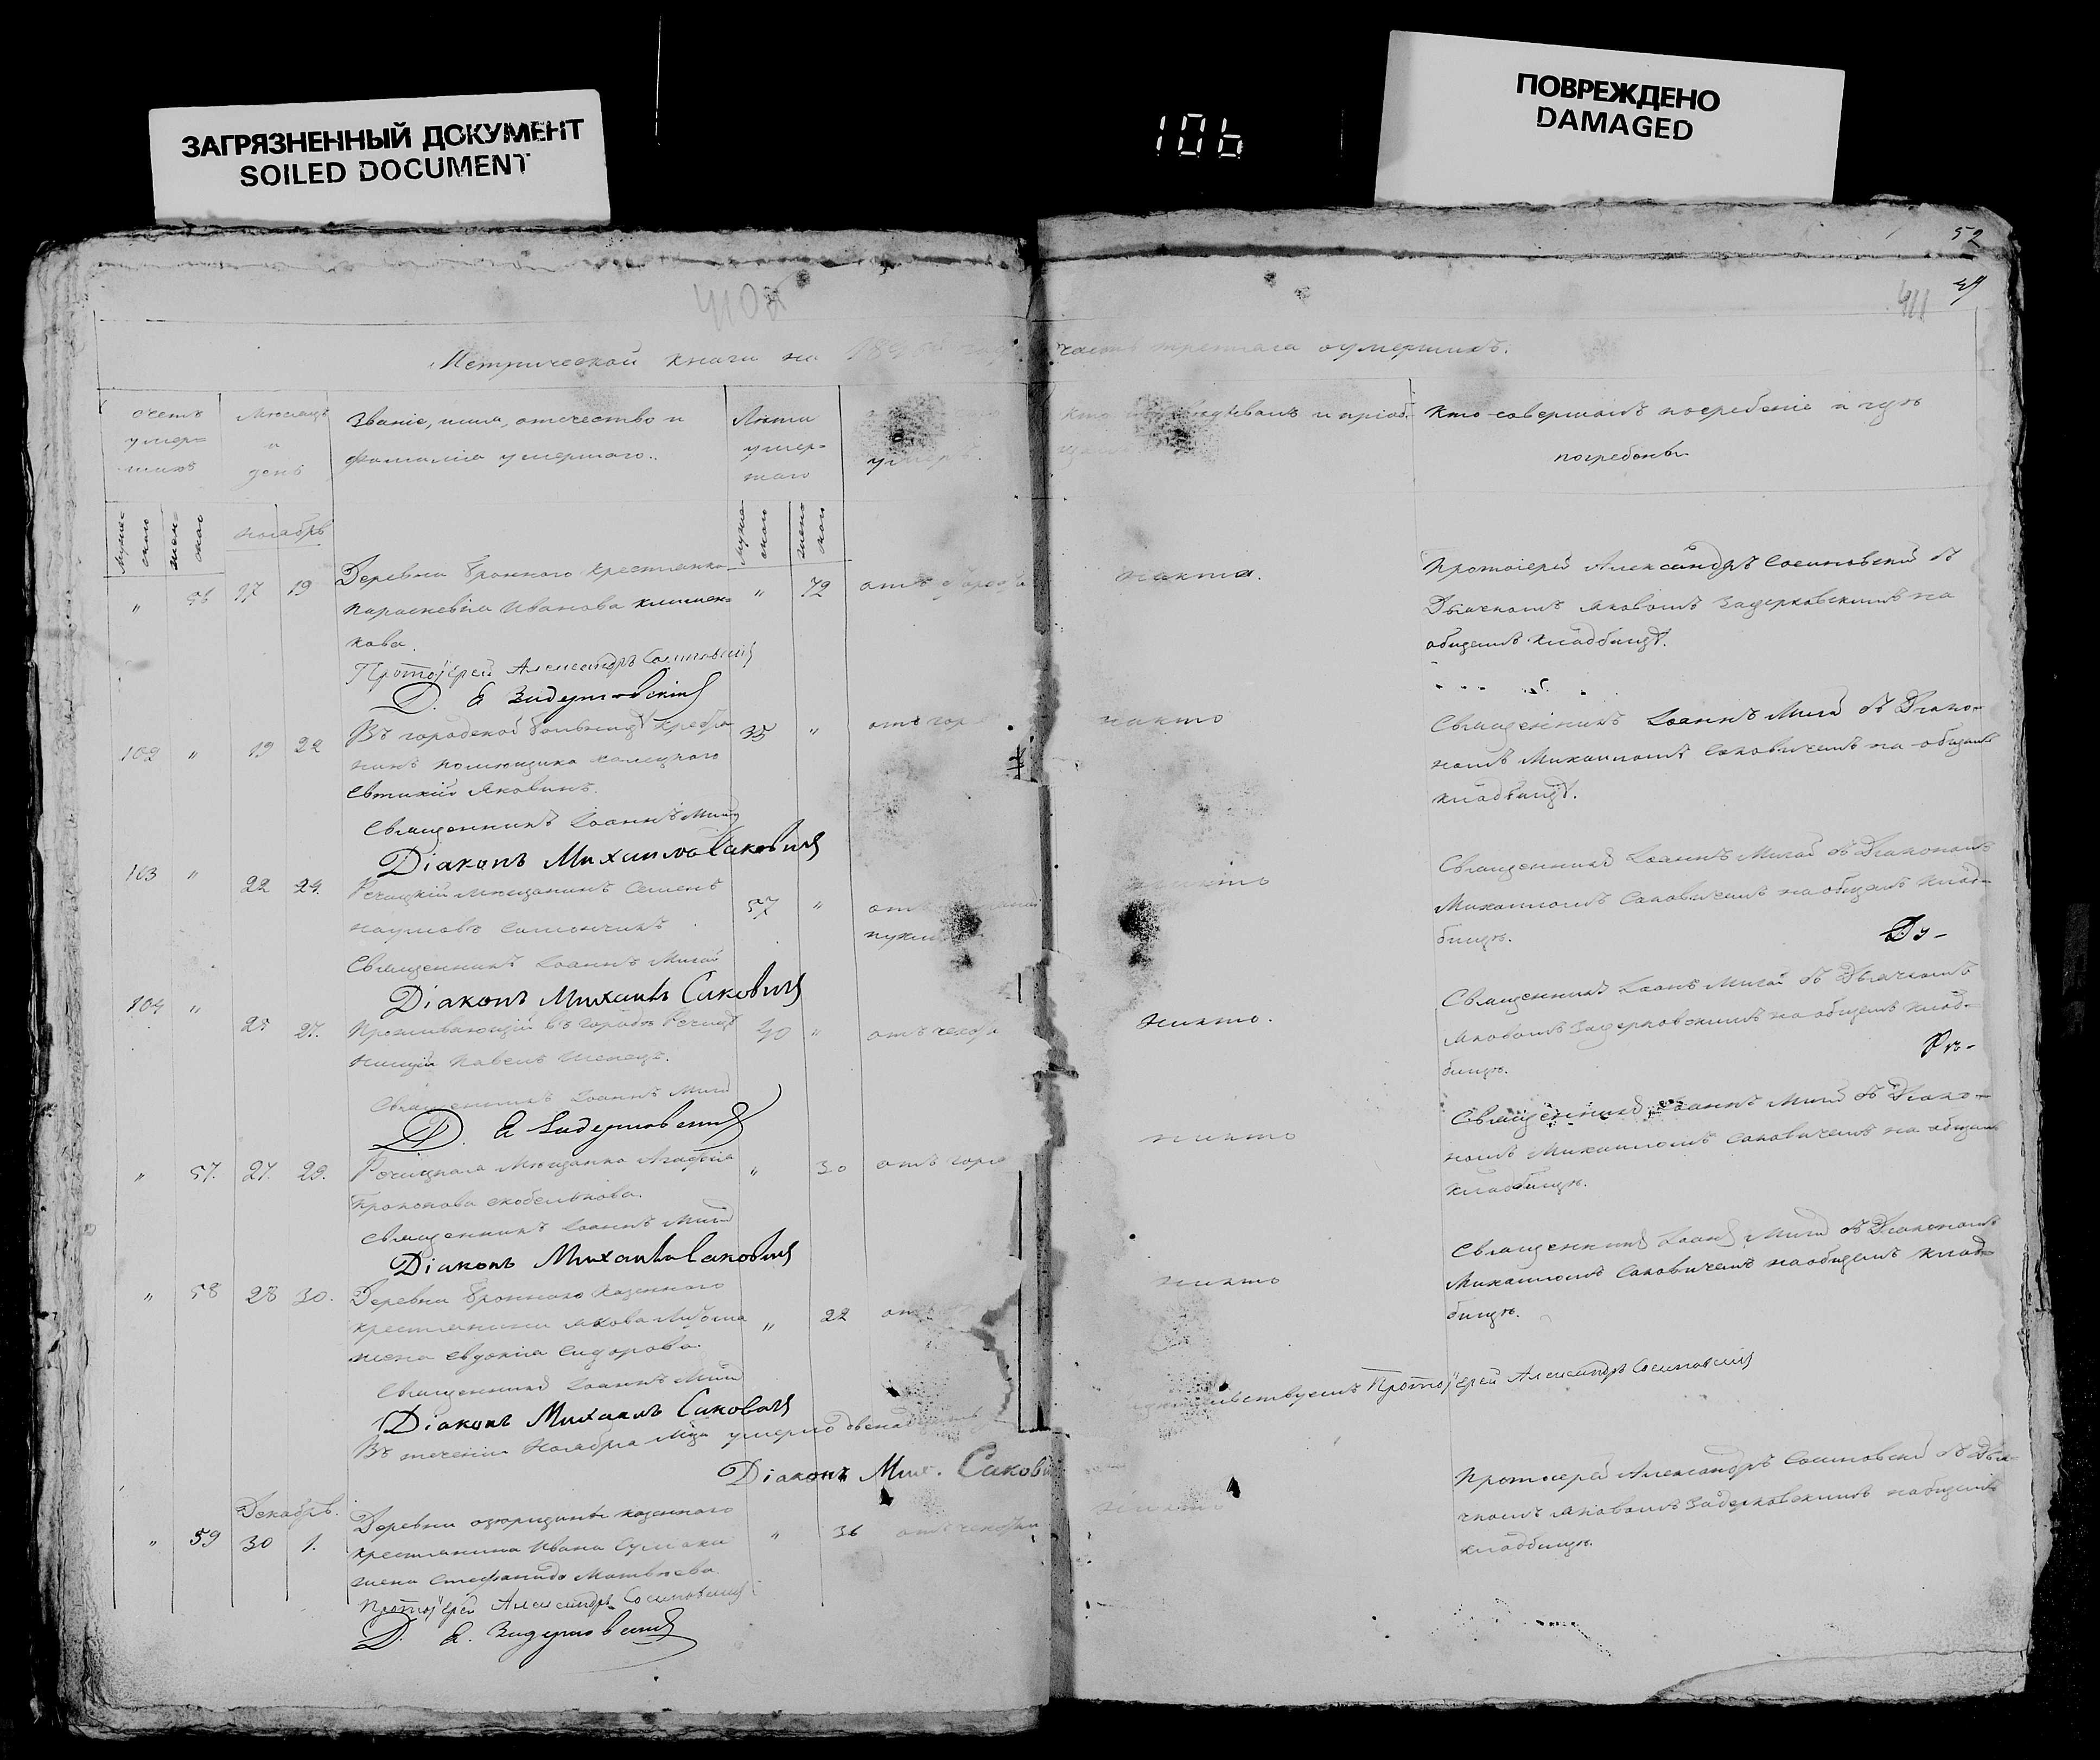 ЗАГРЯЗНЕННЫЙ ДОКУМЕНТ
SOILED DOCUMENT
106
ПОВРЕЖДЕНО
DAMAGED
52
49
411
410
Метрической книги на часть третия о умершихъ.
Счетъ
умер=
шихъ
Мужес=
ского
Жен=
ского
Месяцъ
и
день
Ноябрь
Званіе, имя, отечество и
фамилія умершаго.
Лета
умер=
шаго
Мужес
ского
Женс
кого
Кто исповедывалъ и пріоб-
Кто совершалъ погребеніе и где
погребены
" 56 17 19 Деревни Бронного крестьянка " 72 отъ
Параскевіа Иванова Климен=
кова.
Протоіерей Александръ Сосиновскій
Д. Я Задерковскій
никто.
Протоіерей Александръ Сосиновскій съ
Дьячкомъ Яковомъ Задерковскимъ на
общемъ кладбище.
102 " 19 22 Въ городской больнице крестья 35 " отъ гор
нинъ помещика Холецкого
Евтихій Яковинъ.
Священникъ Іоаннъ Мигай
Діаконъ Михаилъ Саковичъ
никто
Священникъ Іоаннъ Мигай съ Діако=
номъ Михаиломъ Саковичемъ на общемъ
кладбище.
103 " 22 24. Речицкій мещанинъ Семенъ 57 "
Наумовъ
Священникъ Іоаннъ Мигай
Діаконъ Михаилъ Саковичъ
никто
Священникъ Іоаннъ Мигай съ Діакономъ
Михаиломъ Саковичемъ на общемъ клад=
бище.
Ду-
104 " 25 27. Проживающій въ городе Речице 40 " отъ
нищій Павелъ Шепецъ.
Священникъ Іоаннъ Мигай
Д. Я Задерковскій
никто.
Священникъ Іоаннъ Мигай съ Дьячкомъ
Яковомъ Задерковскимъ на общемъ клад=
бище.
Ре-
" 57. 27. 29. Речицкая мещанка Агафіа " 30 отъ горя
Прокопова Скобелькова.
Священникъ Іоаннъ Мигай
Діаконъ Михаилъ Саковичъ
никто
Священникъ Іоаннъ Мигай съ Діако=
номъ Михаиломъ Саковичемъ на общемъ
кладбище.
" 58 28 30. Деревни Бронного казенного
крестьянина Якова " 22
жена Евдокіа Сидорова.
Священникъ Іоаннъ Мигай
Діаконъ Михаилъ Саковичъ
никто
Священникъ Іоаннъ Мигай съ Діакономъ
Михаиломъ Саковичемъ на общемъ клад=
бище.
Въ теченіи Ноября м-ца умерло двенадцать
Діаконъ Мих. Саковичъ
Протоіерей Александръ Сосиновскій
Декабрь.
" 59 30 1. Деревни Озерщины казенного " 36 отъ чехотки
крестьянина Ивана
жена Стефанида Матвеева.
Протоіерей Александръ Сосиновскій
Д. Я. Задерковскій
никто
Протоіерей Александръ Сосиновскій съ Дья=
чкомъ Яковомъ Задерковскимъ на общемъ
кладбище.